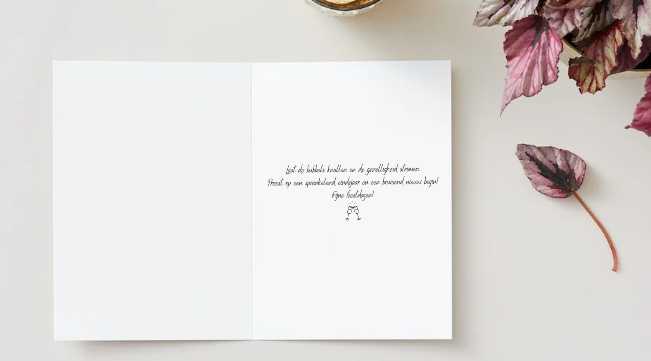 Laat de bubbels knallen en de gezelligheid stromen.
Proost op een sprankelend eindejaar en een bruisend nieuw begin!
Fijne feestdagen!